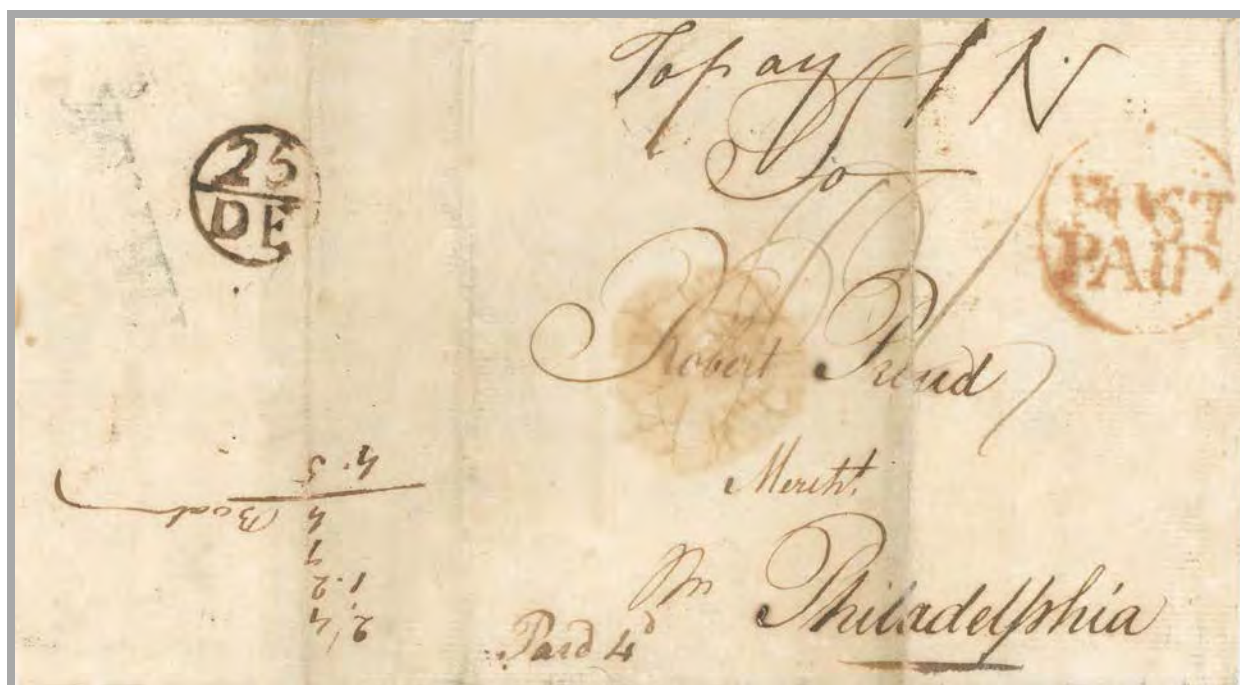 To pay 1 N
25
DE
To
POST
PAID
Robert Proud
Mercht.
In Philadelphia
Paid 4d
2,4
1.2
1
4
Boat
4.5